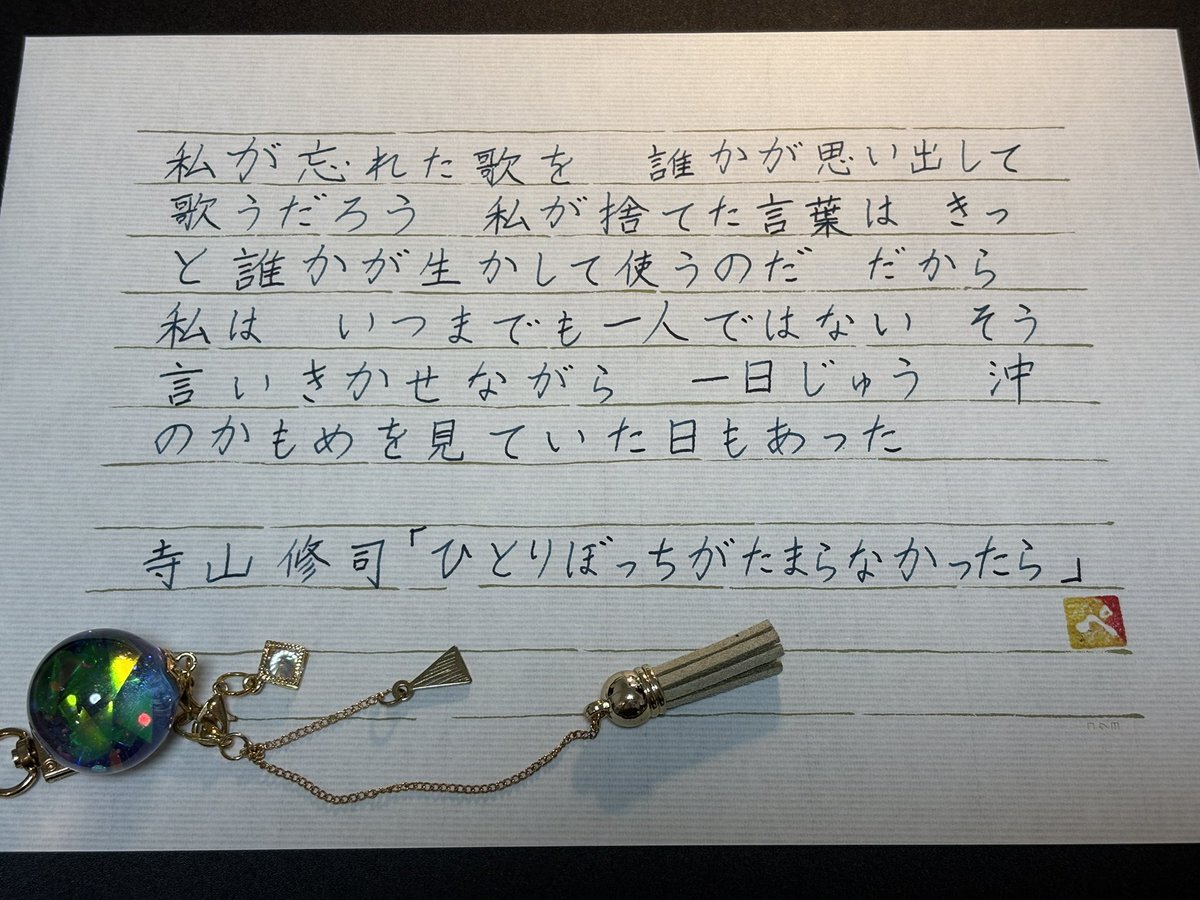 私が忘れた歌を　誰かが思い出して
歌うだろう　私が捨てた言葉は　きっ
と誰かが生かして使うのだ　だから
私は　いつまでも一人ではない　そう
言いきかせながら　一日じゅう　沖
のかもめを見ていた日もあった
寺山修司「ひとりぼっちがたまらなかったら」
ペ